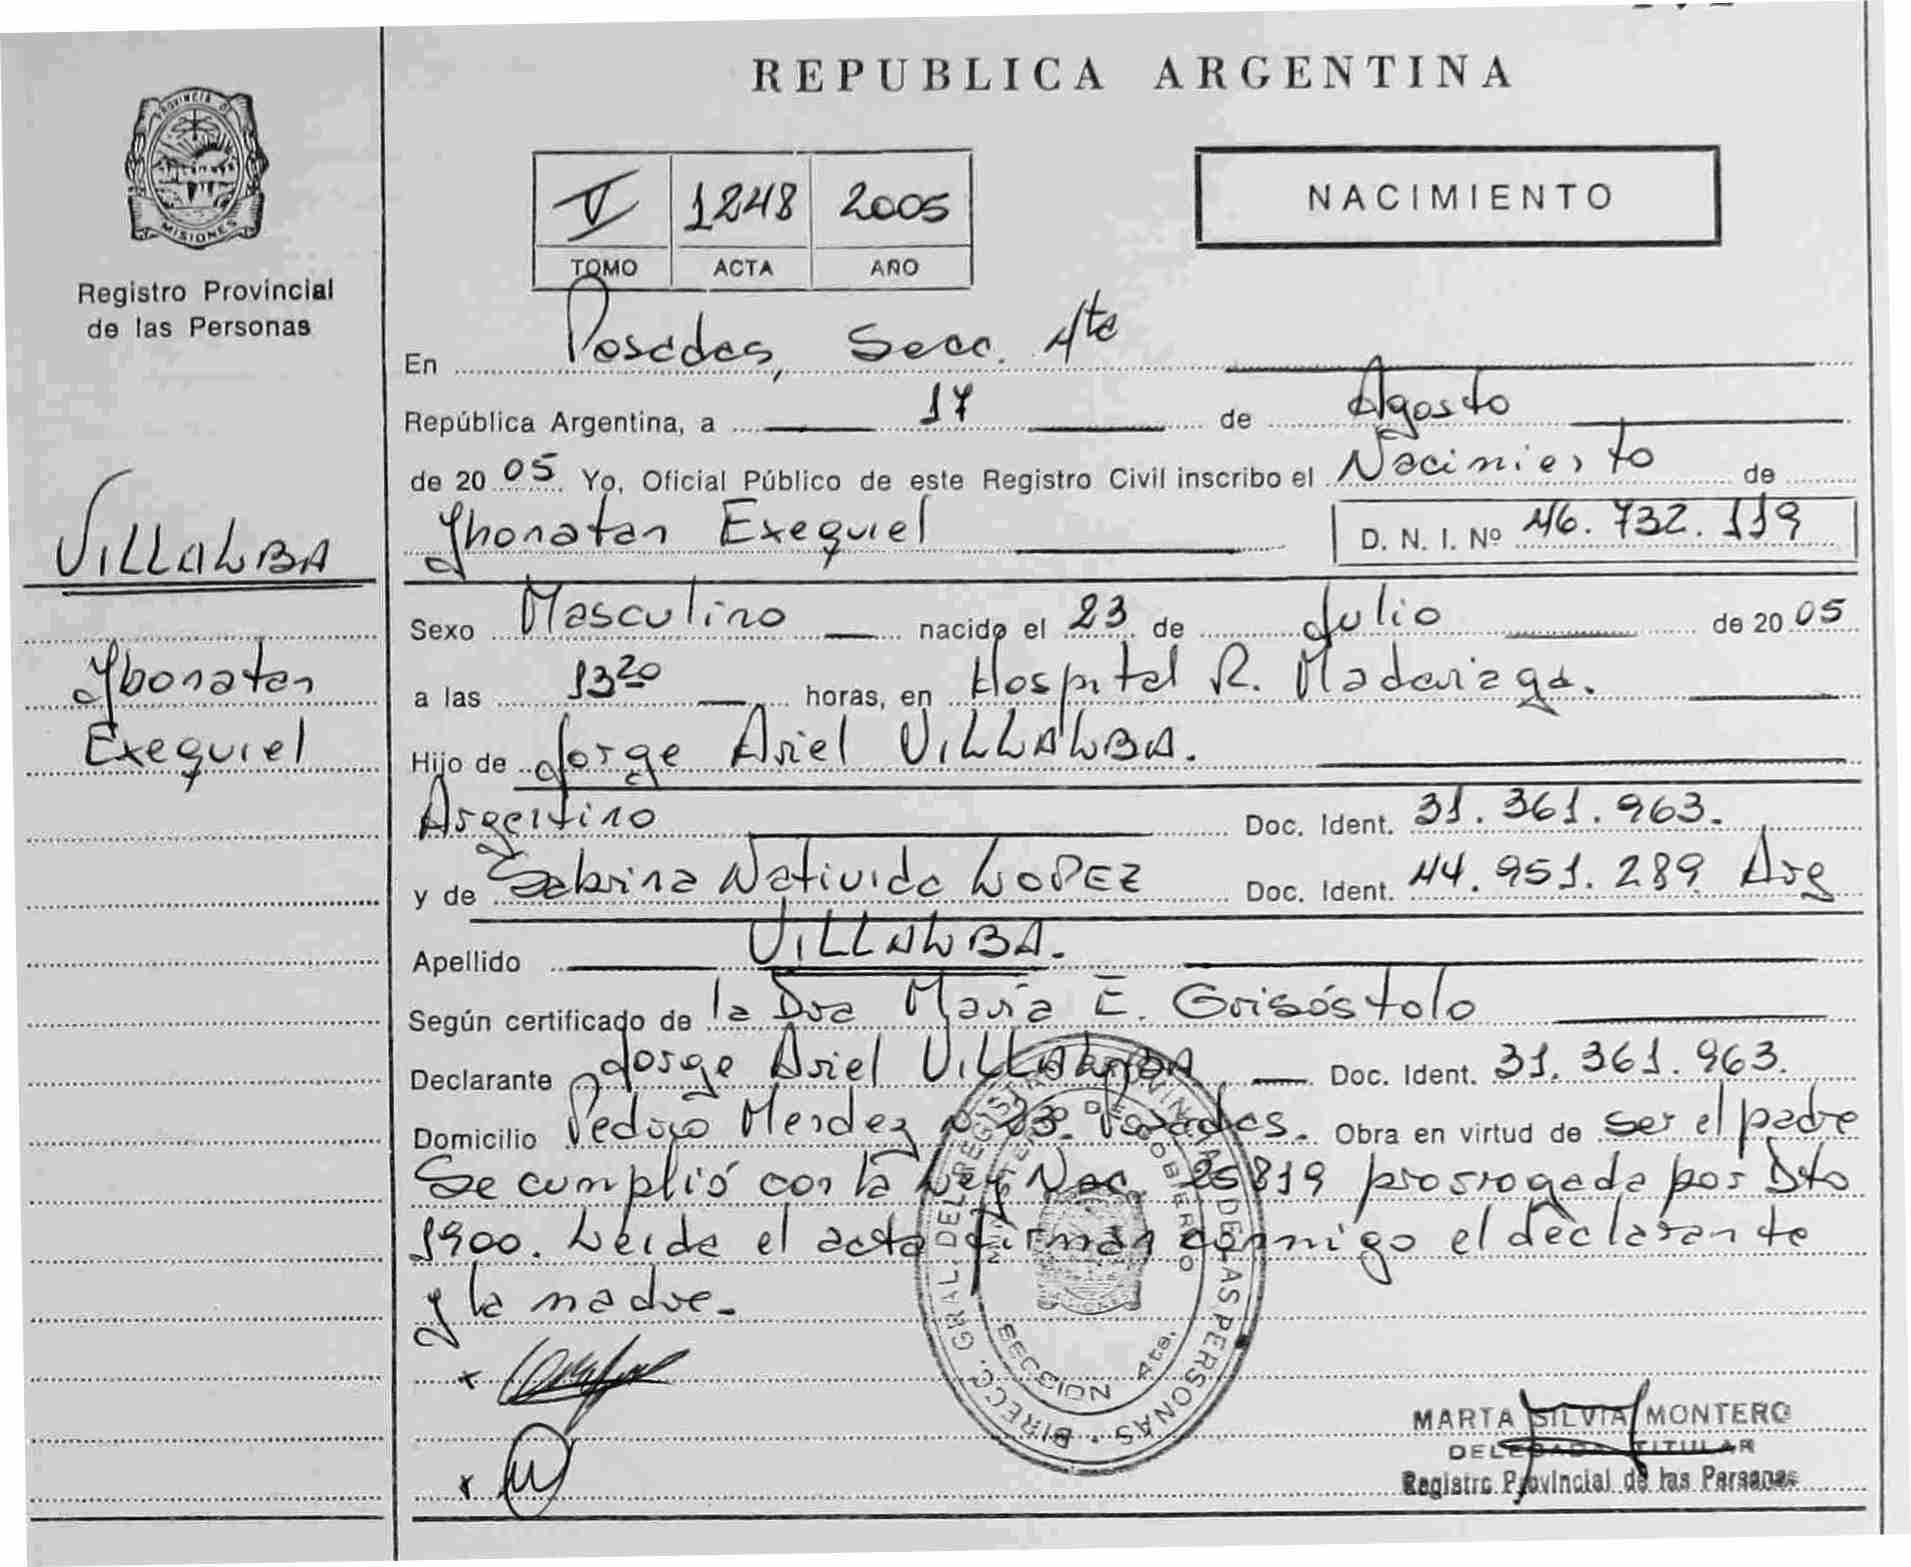 REPUBLICA ARGENTINA
PROVINCIA DE
MISIONES
Registro Provincial
de las Personas
V 1248 2005
TOMO ACTA AÑO
NACIMIENTO
En Posadas, Secc. 4ta
República Argentina, a 17 de Agosto
de 2005 Yo, Oficial Público de este Registro Civil inscribo el Nacimiento de
Jhonatan Exequiel D. N. I. Nº 46.732.119
VILLALBA
Jhonatan
Exequiel
Sexo Masculino nacido el 23 de Julio de 2005
a las 13 20 horas, en Hospital R. Madariaga.
Hijo de Jorge Ariel VILLALBA.
Argentino Doc. Ident. 31.361.963.
y de Sabrina Natividad LOPEZ Doc. Ident. 44.951.289 Arg
Apellido VILLALBA.
Según certificado de la Dra María E. Grisóstolo
Declarante Jorge Ariel VILLALBA Doc. Ident. 31.361.963.
Domicilio Pedro Mendez n 23. Posadas. Obra en virtud de ser el padre
Se cumplió con la Ley Nac. 25819 prorrogada por Dto
1900. Leida el acta firman conmigo el declarante
y la madre.-
DIRECC. GRAL. DEL REGISTRO PROVINCIAL DE LAS PERSONAS
MINISTERIO DE GOBIERNO
SECCION 4ta.
x
x
MARTA SILVIA MONTERO
DELEGADA TITULAR
Registro Provincial de las Personas